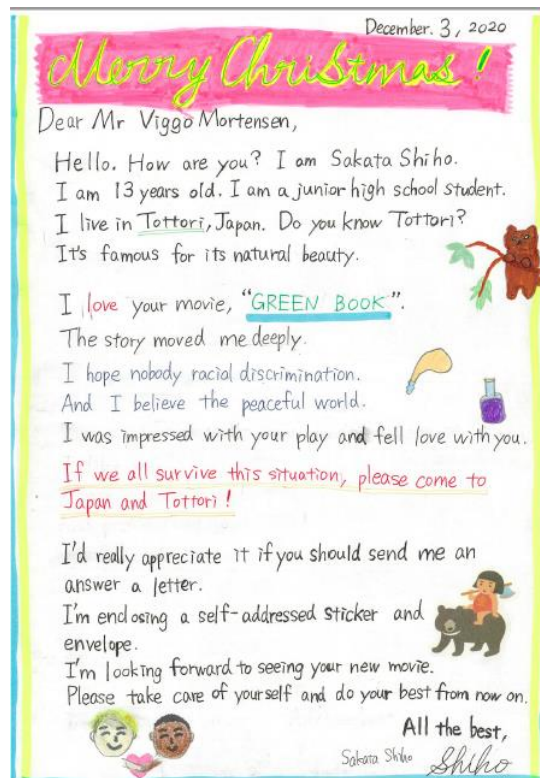 December. 3, 2020
Merry Christmas!
Dear Mr Viggo Mortensen,
Hello. How are you? I am Sakata Shiho.
I am 13 years old. I am a junior high school student.
I live in Tottori, Japan. Do you know Tottori?
It's famous for its natural beauty.
I love your movie, "GREEN BOOK".
The story moved me deeply.
I hope nobody racial discrimination.
And I believe the peaceful world.
I was impressed with your play and fell love with you.
If we all survive this situation, please come to
Japan and Tottori!
I'd really appreciate it if you should send me an
answer a letter.
I'm enclosing a self-addressed sticker and
envelope.
I'm looking forward to seeing your new movie.
Please take care of yourself and do your best from now on.
All the best,
Sakata Shiho Shiho